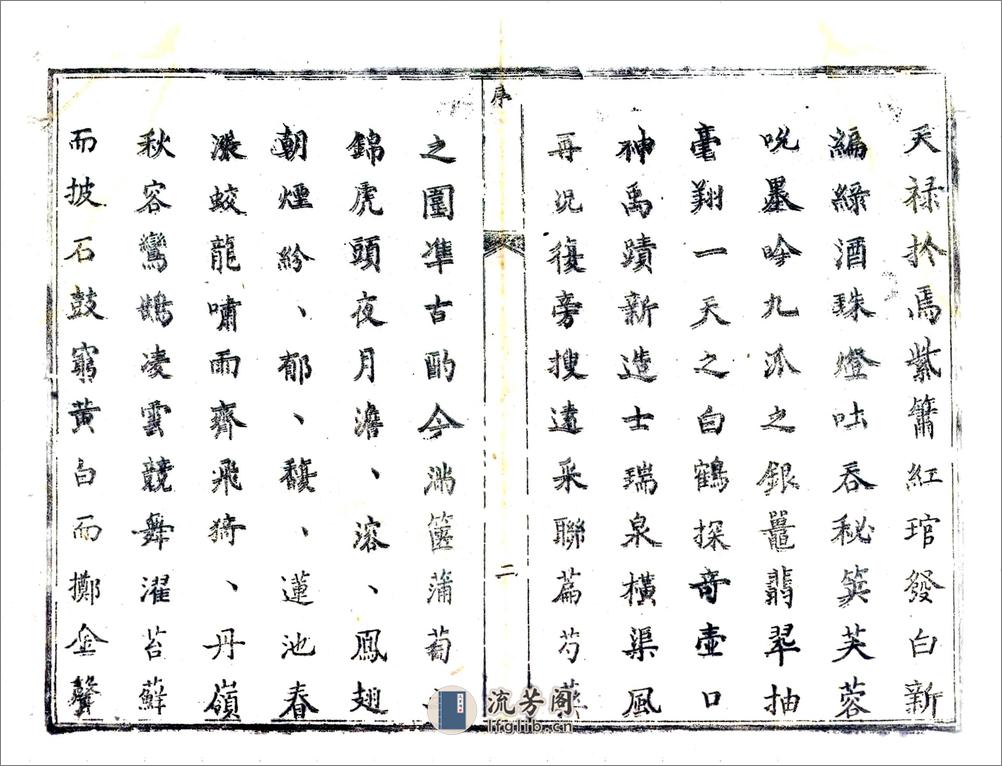 天禄扵焉紫簫紅琯發白新
編緑酒珠燈吐吞秘筴芙蓉
吮墨吟九派之銀鼉翡翠抽
毫翔一天之白鶴探奇壷口
神禹蹟新造士瑞泉橫渠風
再况復旁搜遠采聯篇芍
序
二
之圃凖古酌今滿篋蒲萄
錦虎頭夜月澹、溶、鳳翅
朝煙紛、郁、馥、蓮池春
漲蛟龍嘯雨齊飛猗、丹嶺
秋容鸞鵲凌雲競舞濯苔蘚
而披石鼓窮黄白而擲金聲
流芳阁
lfglib.cn